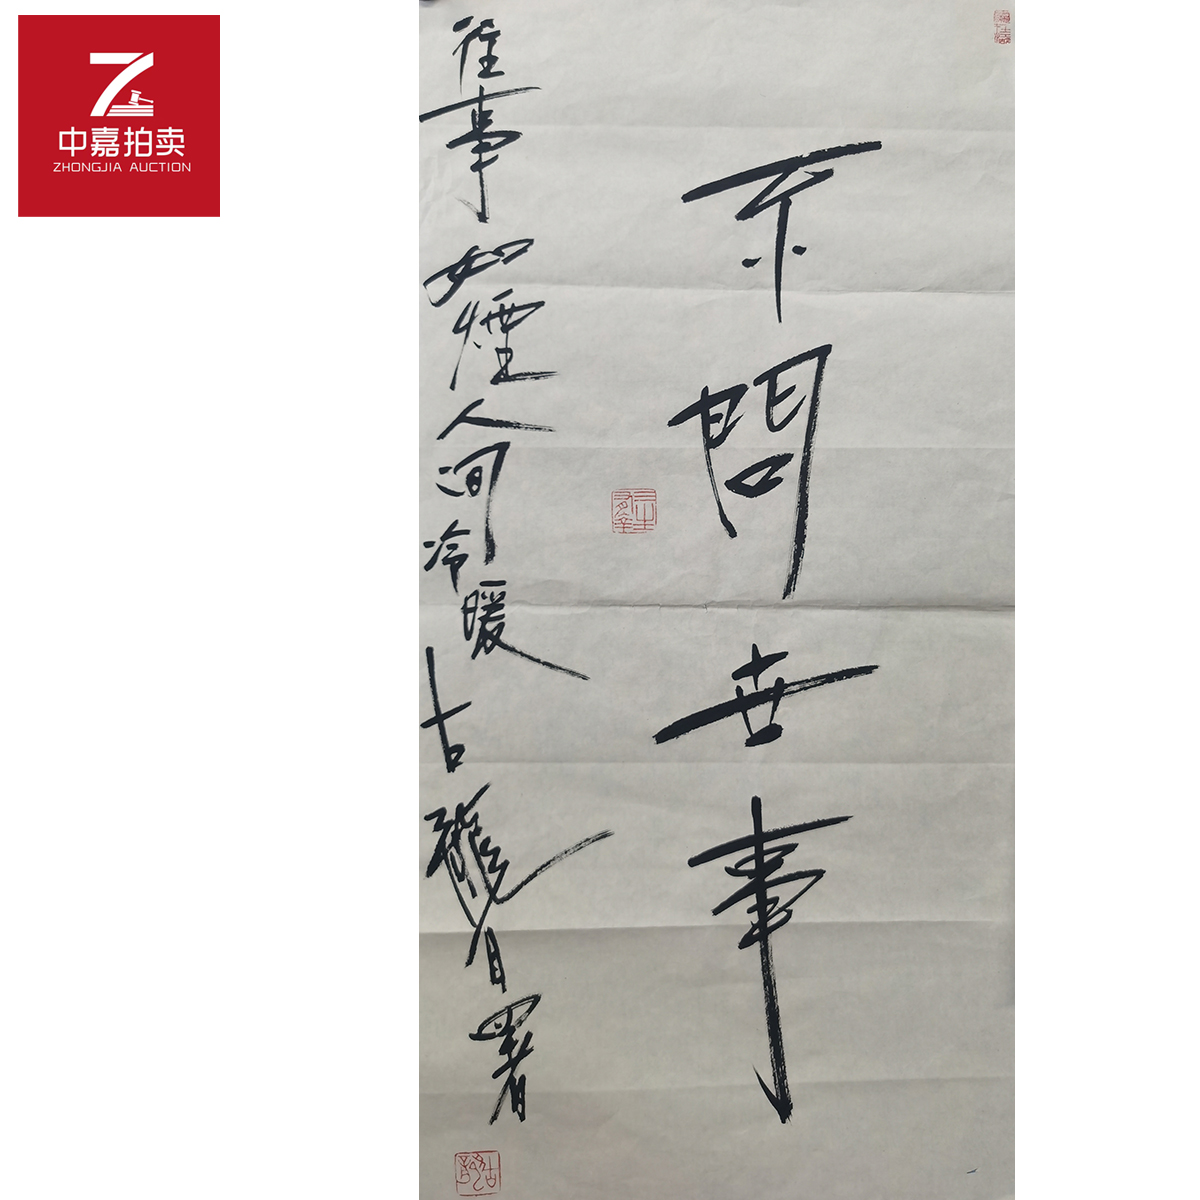 中嘉拍卖
ZHONGJIA AUCTION
不問世事
往事如煙人間冷暖古自署